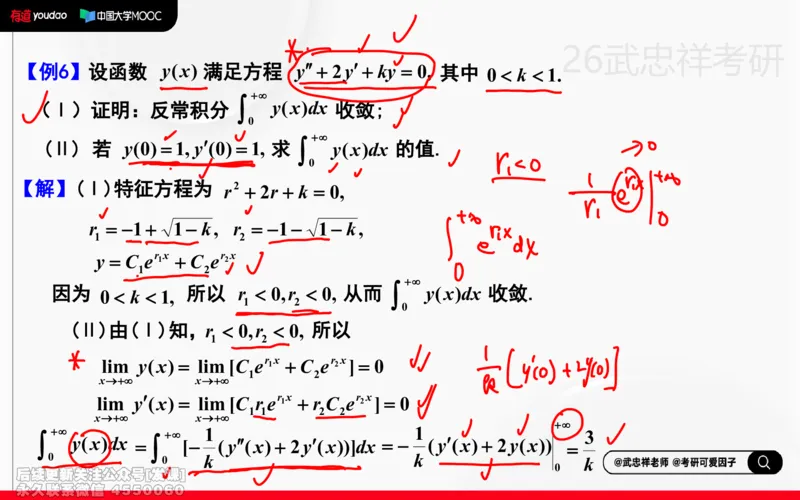 有道 youdao 中国大学MOOC
26武忠祥考研
【例6】设函数 y(x) 满足方程 y″+2y′+ky=0, 其中 0<k<1.
(Ⅰ) 证明：反常积分 ∫₀^{+∞} y(x)dx 收敛；
(Ⅱ) 若 y(0)=1, y′(0)=1, 求 ∫₀^{+∞} y(x)dx 的值.
r₁<0
1/r₁ e^{r₁x} |₀^{+∞} →0
【解】(Ⅰ)特征方程为 r²+2r+k=0,
r₁=−1+√1−k, r₂=−1−√1−k,
∫₀^{+∞} e^{r₁x}dx
y=C₁e^{r₁x}+C₂e^{r₂x}
因为 0<k<1, 所以 r₁<0,r₂<0, 从而 ∫₀^{+∞} y(x)dx 收敛.
(Ⅱ)由(Ⅰ)知, r₁<0,r₂<0, 所以
lim_{x→+∞} y(x)=lim_{x→+∞}[C₁e^{r₁x}+C₂e^{r₂x}]=0
1/k [y′(0)+2y(0)]
lim_{x→+∞} y′(x)=lim_{x→+∞}[C₁r₁e^{r₁x}+r₂C₂e^{r₂x}]=0
∫₀^{+∞} y(x)dx=∫₀^{+∞}[−1/k(y″(x)+2y′(x))]dx=−1/k(y′(x)+2y(x))|₀^{+∞}=3/k
@武忠祥老师 @考研可爱因子
后续更新关注公众号[发课]
永久联系微信 4550060